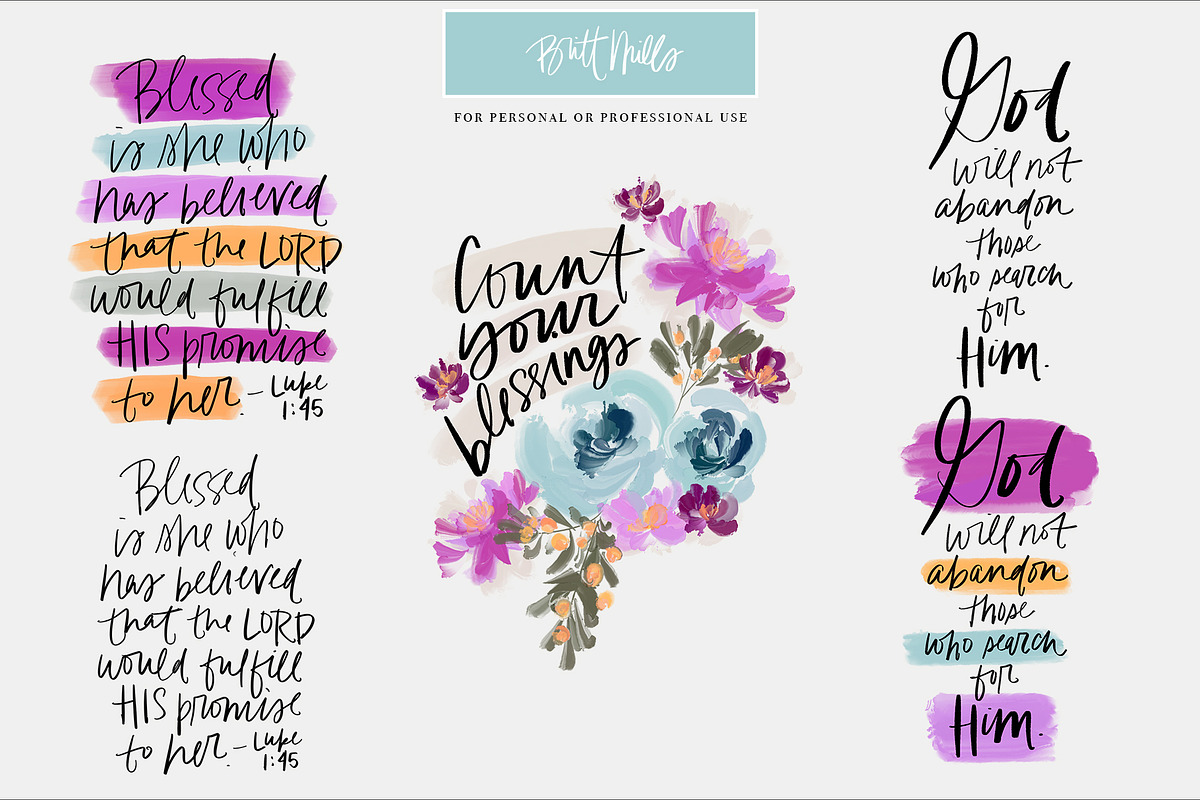 Britt Mills
FOR PERSONAL OR PROFESSIONAL USE
Blessed
is she who
has believed
that the LORD
would fulfill
HIS promise
to her. – Luke
1:45
Blessed
is she who
has believed
that the LORD
would fulfill
HIS promise
to her. – Luke
1:45
Count
your
blessings
God
will not
abandon
those
who search
for
Him.
God
will not
abandon
those
who search
for
Him.